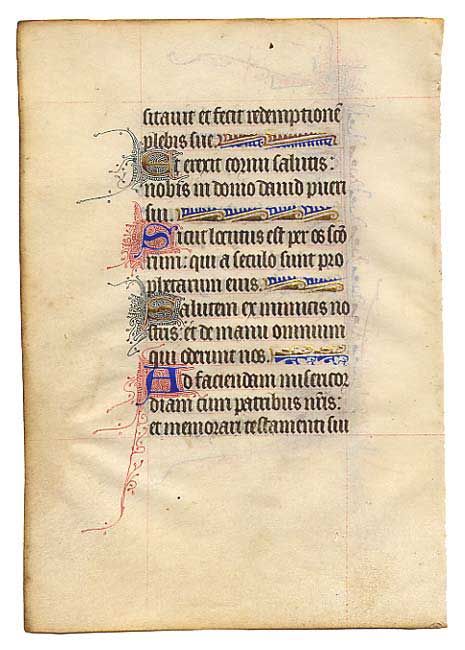 sitauit et fecit redemptionē
plebis sue.
Et erexit cornu salutis:
nobis in domo dauid pueri
sui.
Sicut locutus est per os scō
rum: qui a seculo sunt pro
phetarum eius.
Salutem ex inimicis no
stris: et de manu omnium
qui oderunt nos.
Ad faciendam misericor
diam cum patribus nr̄is:
et memorari testamenti sui